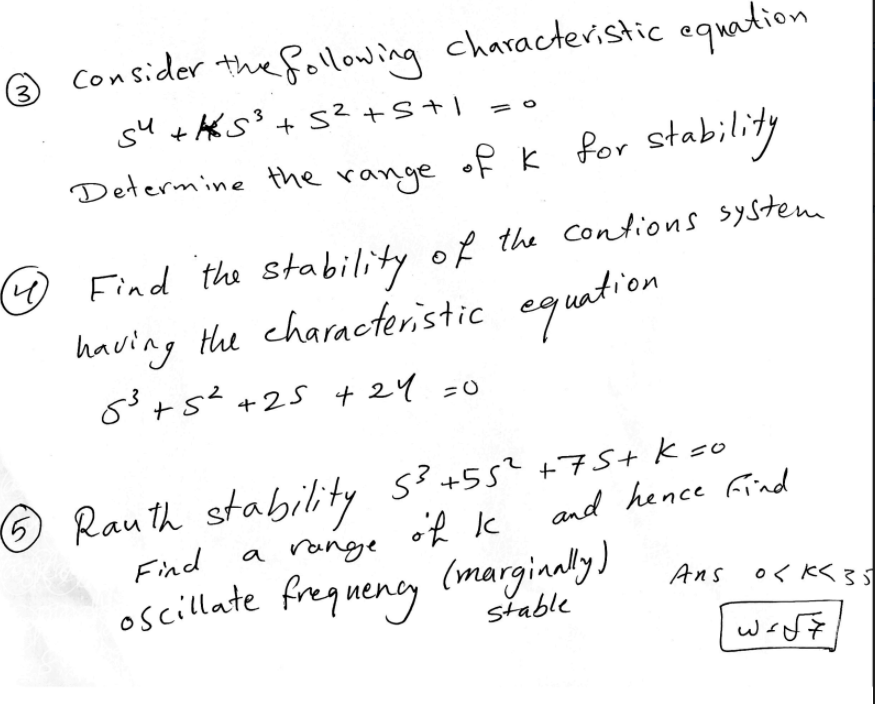 ③ Consider the following characteristic equation
S⁴ + KS³ + S² + S + 1 = 0
Determine the range of K for stability
④ Find the stability of the contions system
having the characteristic equation
S³ + S² + 2S + 24 = 0
⑤ Rauth stability S³ + 5S² + 7S + K = 0
Find a range of K and hence Find
oscillate frequency (marginally)
stable
Ans 0 < K < 35
W = √7